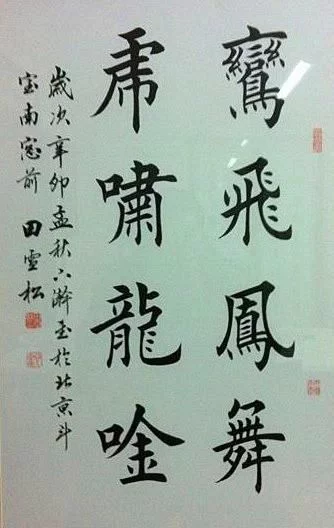 鸞飛鳳舞
虎嘯龍唫
歲次辛卯孟秋下澣書於北京斗
室南窓前 田雪松